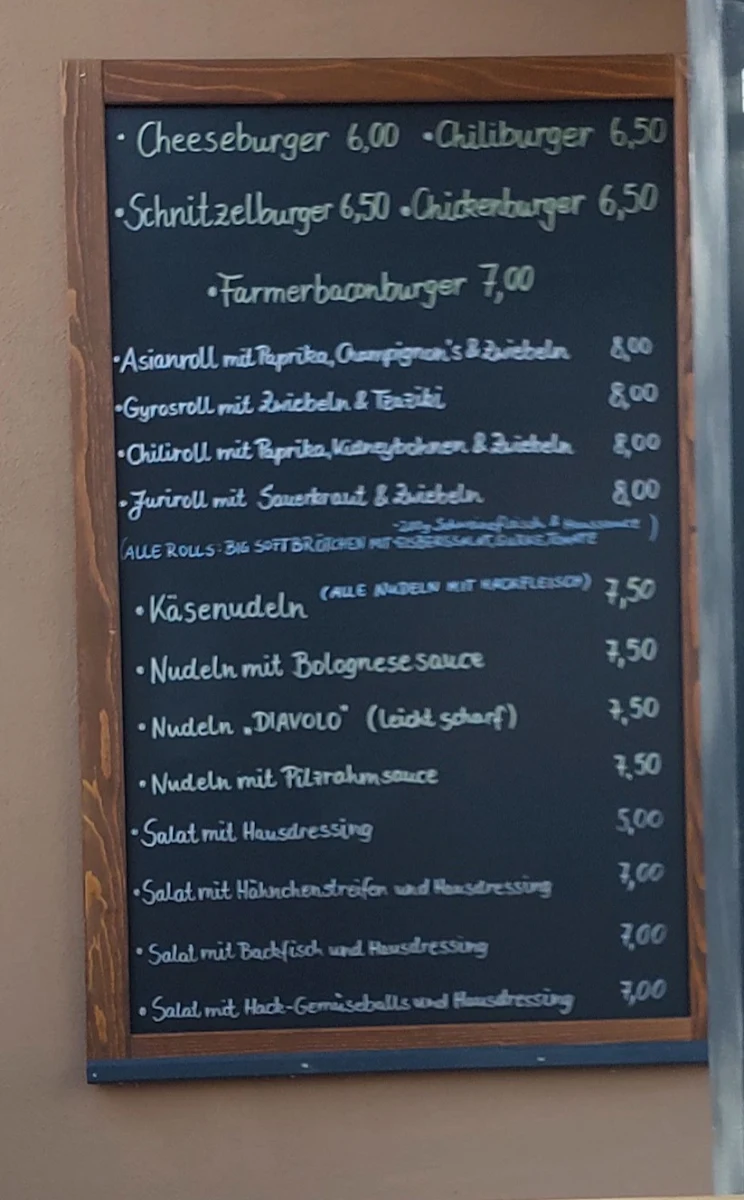 · Cheeseburger 6,00 · Chiliburger 6,50
· Schnitzelburger 6,50 · Chickenburger 6,50
· Farmerbaconburger 7,00
· Asianroll mit Paprika, Champignon's & Zwiebeln 8,00
· Gyrosroll mit Zwiebeln & Tzaziki 8,00
· Chiliroll mit Paprika, Kidneybohnen & Zwiebeln 8,00
· Juriroll mit Sauerkraut & Zwiebeln 8,00
(ALLE ROLLS: BIG SOFTBRÖTCHEN MIT EISBERGSALAT, GURKE, TOMATE )
(ALLE NUDELN MIT HACKFLEISCH)
· Käsenudeln 7,50
· Nudeln mit Bolognesesauce 7,50
· Nudeln „DIAVOLO" (leicht scharf) 7,50
· Nudeln mit Pilzrahmsauce 7,50
· Salat mit Hausdressing 5,00
· Salat mit Hähnchenstreifen und Hausdressing 7,00
· Salat mit Backfisch und Hausdressing 7,00
· Salat mit Hack-Gemüseballs und Hausdressing 7,00